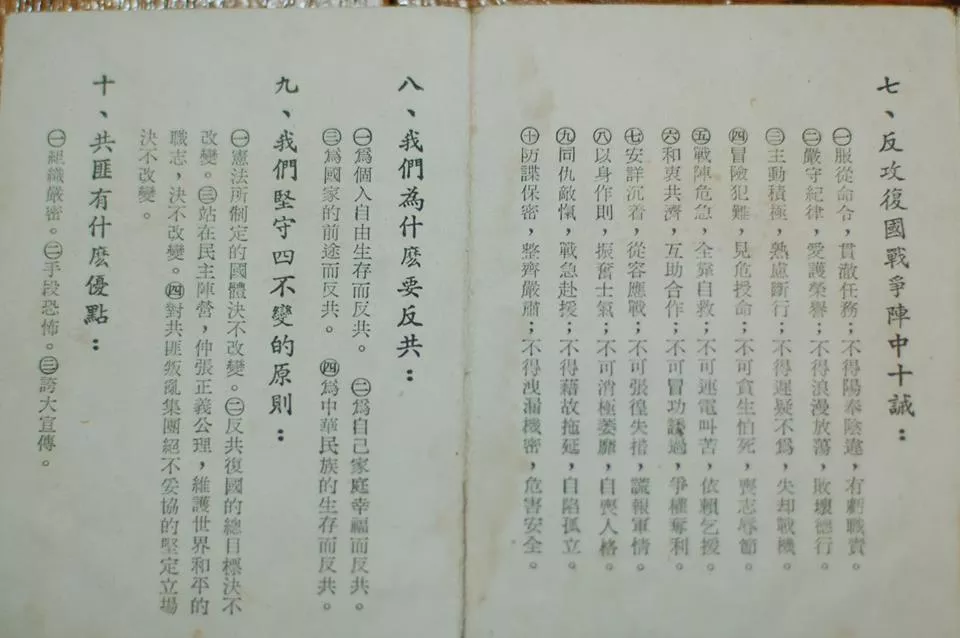 七、反攻復國戰爭陣中十誡：
㊀服從命令，貫澈任務；不得陽奉陰違，有虧職責。
㊁嚴守紀律，愛護榮譽；不得浪漫放蕩，敗壞德行。
㊂主動積極，熟慮斷行；不得遲疑不爲，失却戰機。
㊃冒險犯難，見危授命；不可貪生怕死，喪志辱節。
㊄戰陣危急，全靠自救；不可連電叫苦，依賴乞援。
㊅和衷共濟，互助合作；不可冒功諉過，爭權奪利。
㊆安詳沉着，從容應戰；不可張徨失措，謊報軍情。
㊇以身作則，振奮士氣；不可消極萎靡，自喪人格。
㊈同仇敵愾，戰急赴援；不得藉故拖延，自陷孤立。
㊉防諜保密，整齊嚴肅；不得洩漏機密，危害安全。
八、我們為什麽要反共：
㊀爲個人自由生存而反共。㊁爲自己家庭幸福而反共。
㊂爲國家的前途而反共。㊃爲中華民族的生存而反共。
九、我們堅守四不變的原則：
㊀憲法所制定的國體決不改變。㊁反共復國的總目標決不
改變。㊂站在民主陣營，伸張正義公理，維護世界和平的
職志，決不改變。㊃對共匪叛亂集團絕不妥協的堅定立場
決不改變。
十、共匪有什麽優點：
㊀組織嚴密。㊁手段恐怖。㊂誇大宣傳。